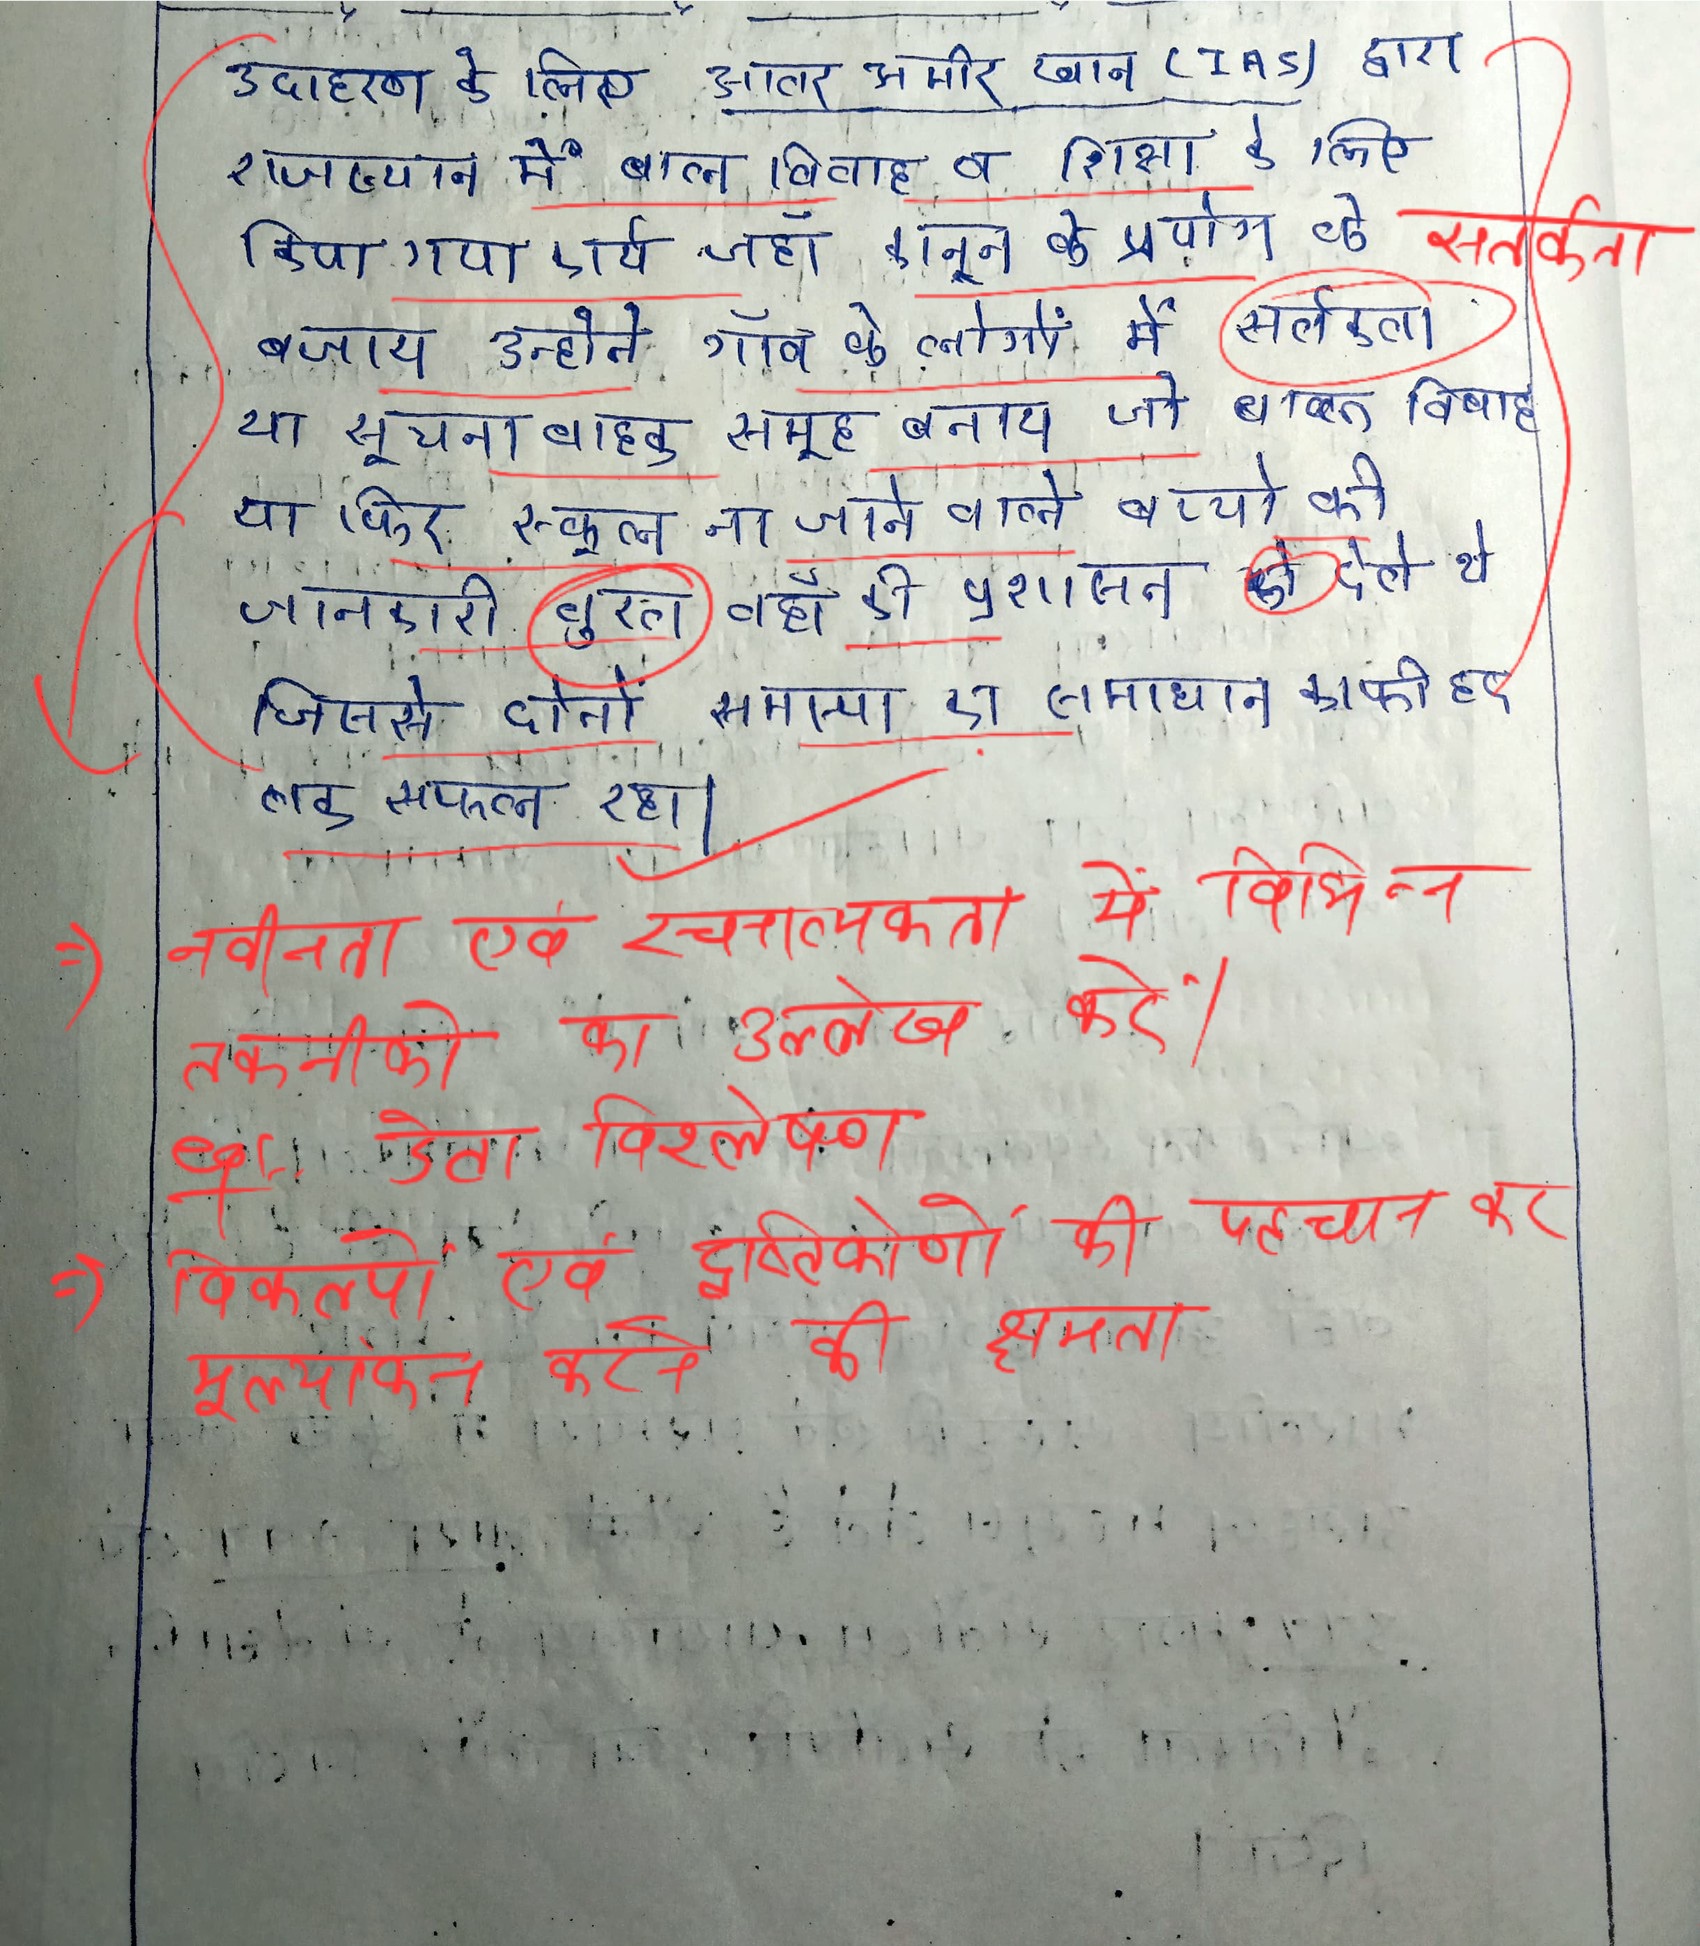 उदाहरण के लिए आतर अमीर खान (IAS) द्वारा
राजस्थान में बाल विवाह व शिक्षा के लिए
किया गया कार्य जहाँ कानून के प्रयोग के सतर्कता
बजाय उन्होने गाँव के लोगों में सर्तकता
या सूचना वाहक समूह बनाय जो बाल विवाह
या फिर स्कूल ना जाने वाले बच्चो की
जानकारी तुरत वहाँ की प्रशासन को देते थे
जिससे दोनों समास्या का समाधान काफी हद
तक सफल रहा।
⇒ नवीनता एवं रचनात्मकता में विभिन्न
तकनीको का उल्लेख करें।
डेटा विश्लेषण
⇒ विकल्पों एवं दृष्टिकोणों की पहचान कर
मूल्यांकन करने की क्षमता